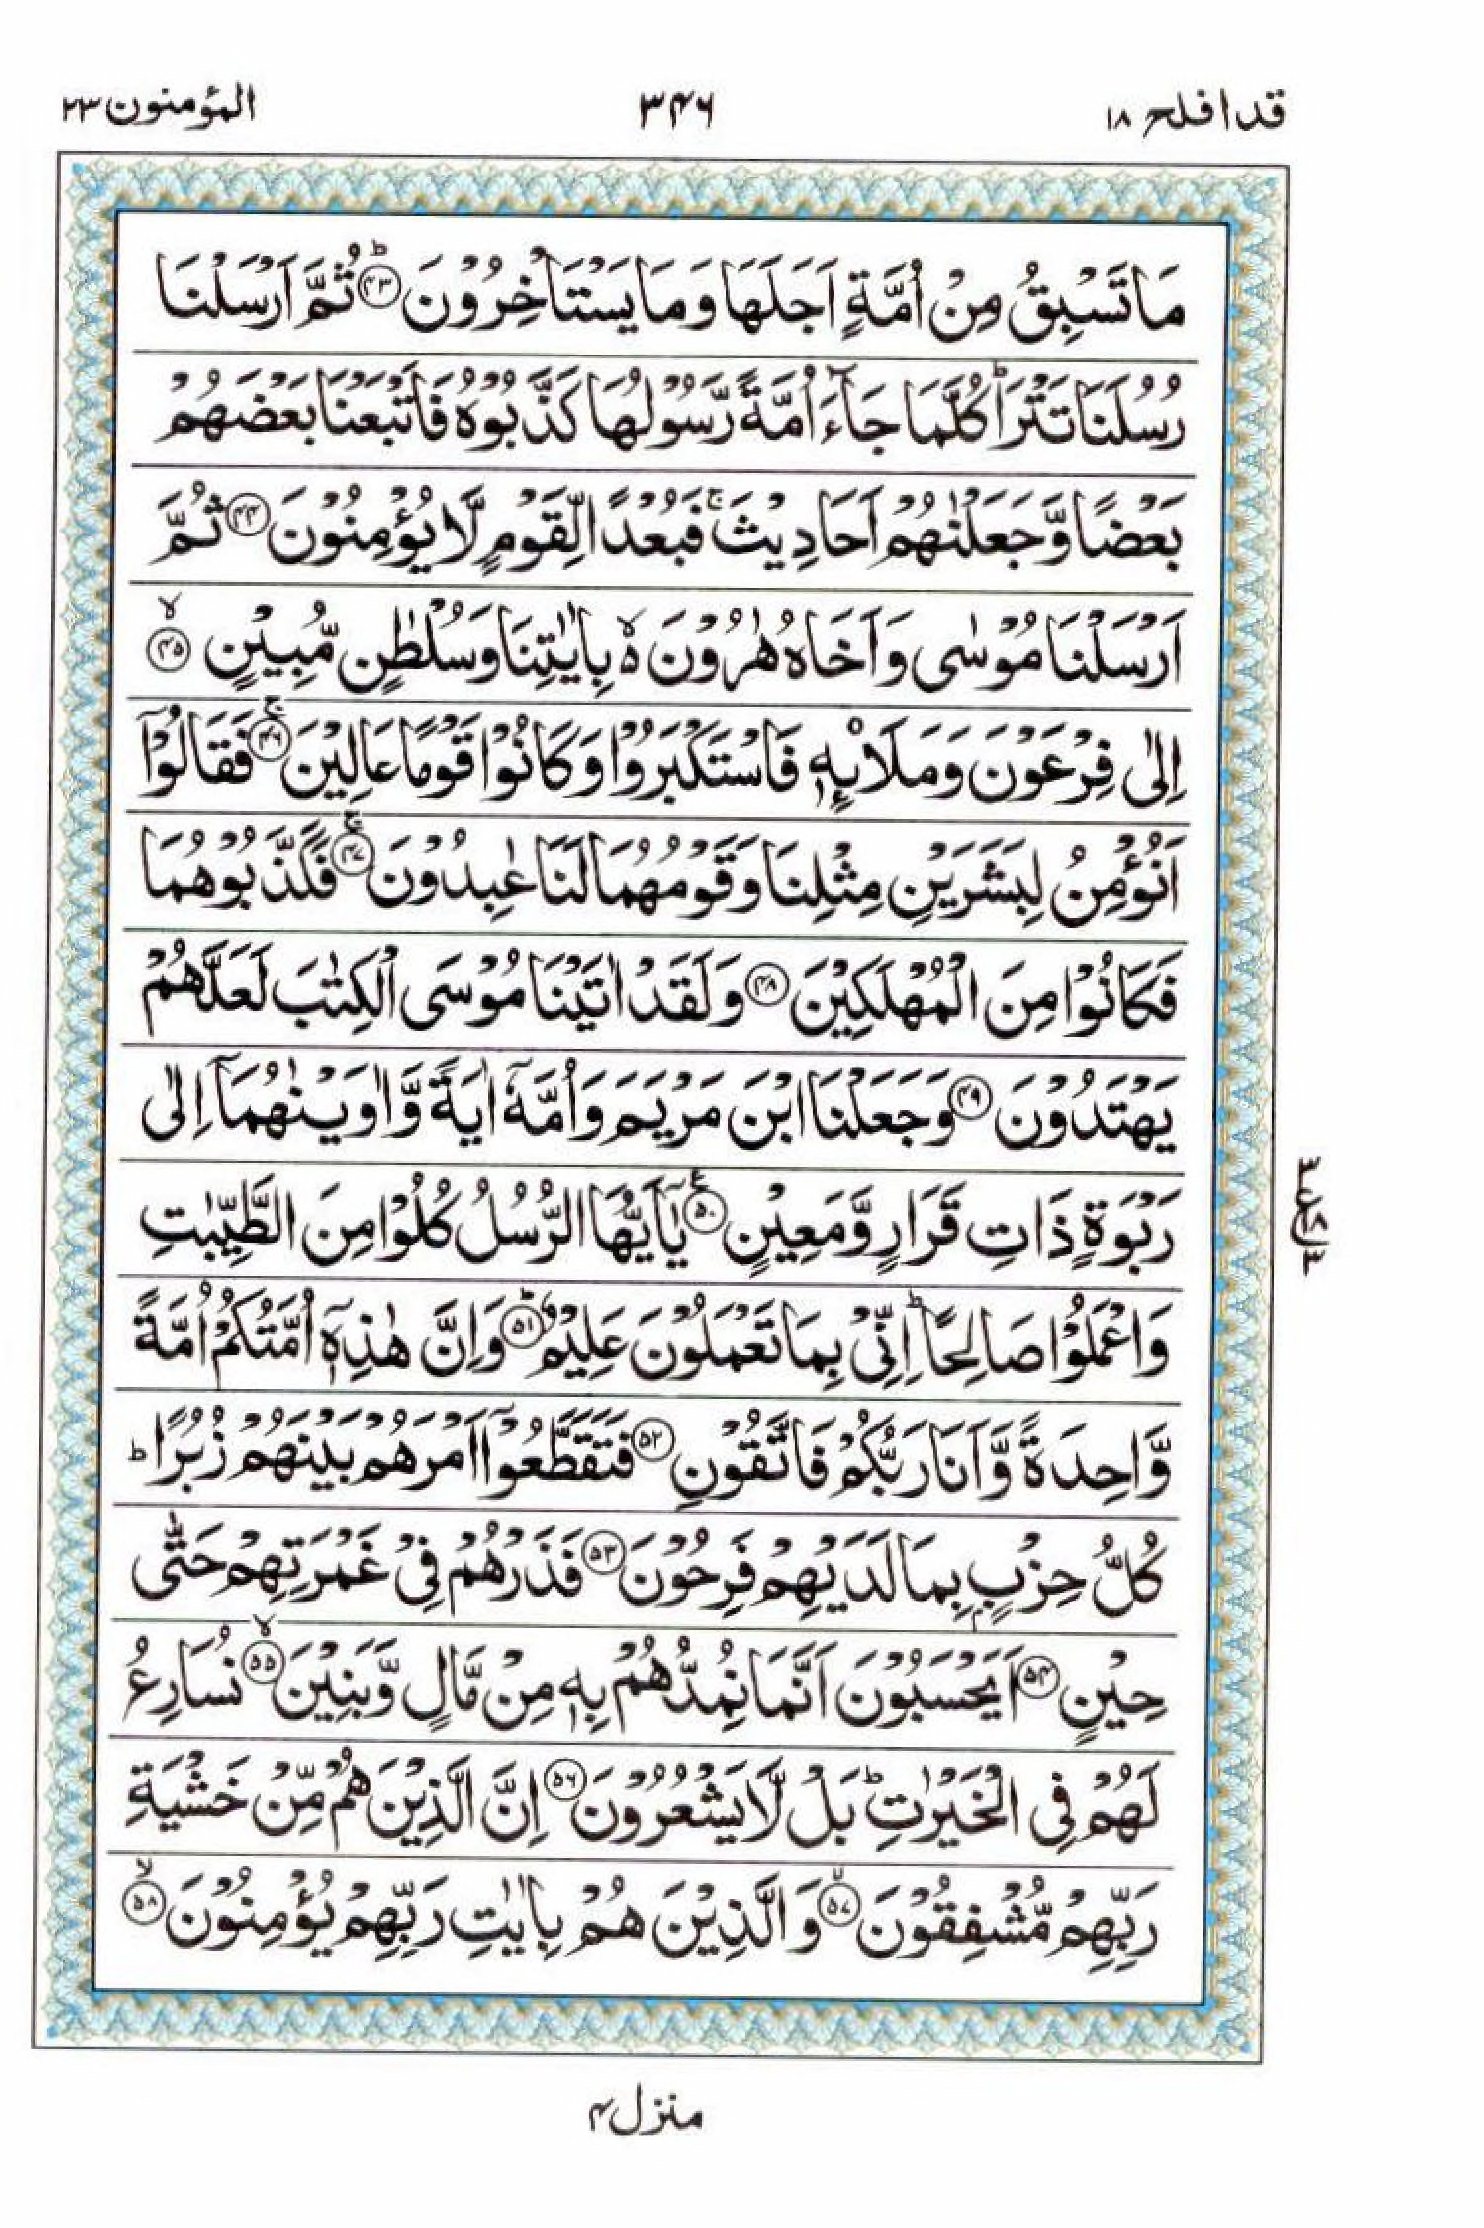 قد افلح ۱۸
۳۴۶
المؤمنون ۲۳
مَا تَسْبِقُ مِنْ اُمَّةٍ اَجَلَهَا وَ مَا يَسْتَاْخِرُوْنَ ؕ‏﴿۴۳﴾ ثُمَّ اَرْسَلْنَا
رُسُلَنَا تَتْرَا ؕ كُلَّمَا جَآءَ اُمَّةً رَّسُوْلُهَا كَذَّبُوْهُ فَاَتْبَعْنَا بَعْضَهُمْ
بَعْضًا وَّ جَعَلْنٰهُمْ اَحَادِيْثَ ۚ فَبُعْدًا لِّقَوْمٍ لَّا يُؤْمِنُوْنَ ﴿۴۴﴾ ثُمَّ
اَرْسَلْنَا مُوْسٰى وَ اَخَاهُ هٰرُوْنَ ۙ۬ بِاٰيٰتِنَا وَ سُلْطٰنٍ مُّبِيْنٍ ۙ‏﴿۴۵﴾
اِلٰى فِرْعَوْنَ وَ مَلَا۠ئِهٖ فَاسْتَكْبَرُوْا وَ كَانُوْا قَوْمًا عَالِيْنَ ۚ‏﴿۴۶﴾ فَقَالُوْۤا
اَنُؤْمِنُ لِبَشَرَيْنِ مِثْلِنَا وَ قَوْمُهُمَا لَنَا عٰبِدُوْنَ ۚ‏﴿۴۷﴾ فَكَذَّبُوْهُمَا
فَكَانُوْا مِنَ الْمُهْلَكِيْنَ ﴿۴۸﴾ وَ لَقَدْ اٰتَيْنَا مُوْسَى الْكِتٰبَ لَعَلَّهُمْ
يَهْتَدُوْنَ ﴿۴۹﴾ وَ جَعَلْنَا ابْنَ مَرْيَمَ وَ اُمَّهٗۤ اٰيَةً وَّ اٰوَيْنٰهُمَاۤ اِلٰى
رَبْوَةٍ ذَاتِ قَرَارٍ وَّ مَعِيْنٍ ﴿۵۰﴾ ع يٰۤاَيُّهَا الرُّسُلُ كُلُوْا مِنَ الطَّيِّبٰتِ
وَ اعْمَلُوْا صَالِحًا ؕ اِنِّيْ بِمَا تَعْمَلُوْنَ عَلِيْمٌ ؕ‏﴿۵۱﴾ وَ اِنَّ هٰذِهٖۤ اُمَّتُكُمْ اُمَّةً
وَّاحِدَةً وَّ اَنَا رَبُّكُمْ فَاتَّقُوْنِ ﴿۵۲﴾ فَتَقَطَّعُوْۤا اَمْرَهُمْ بَيْنَهُمْ زُبُرًا ؕ
كُلُّ حِزْبٍۭ بِمَا لَدَيْهِمْ فَرِحُوْنَ ﴿۵۳﴾ فَذَرْهُمْ فِيْ غَمْرَتِهِمْ حَتّٰى
حِيْنٍ ﴿۵۴﴾ اَيَحْسَبُوْنَ اَنَّمَا نُمِدُّهُمْ بِهٖ مِنْ مَّالٍ وَّ بَنِيْنَ ۙ‏﴿۵۵﴾ نُسَارِعُ
لَهُمْ فِي الْخَيْرٰتِ ؕ بَلْ لَّا يَشْعُرُوْنَ ﴿۵۶﴾ اِنَّ الَّذِيْنَ هُمْ مِّنْ خَشْيَةِ
رَبِّهِمْ مُّشْفِقُوْنَ ۙ‏﴿۵۷﴾ وَ الَّذِيْنَ هُمْ بِاٰيٰتِ رَبِّهِمْ يُؤْمِنُوْنَ ۙ‏﴿۵۸﴾
منزل ۴